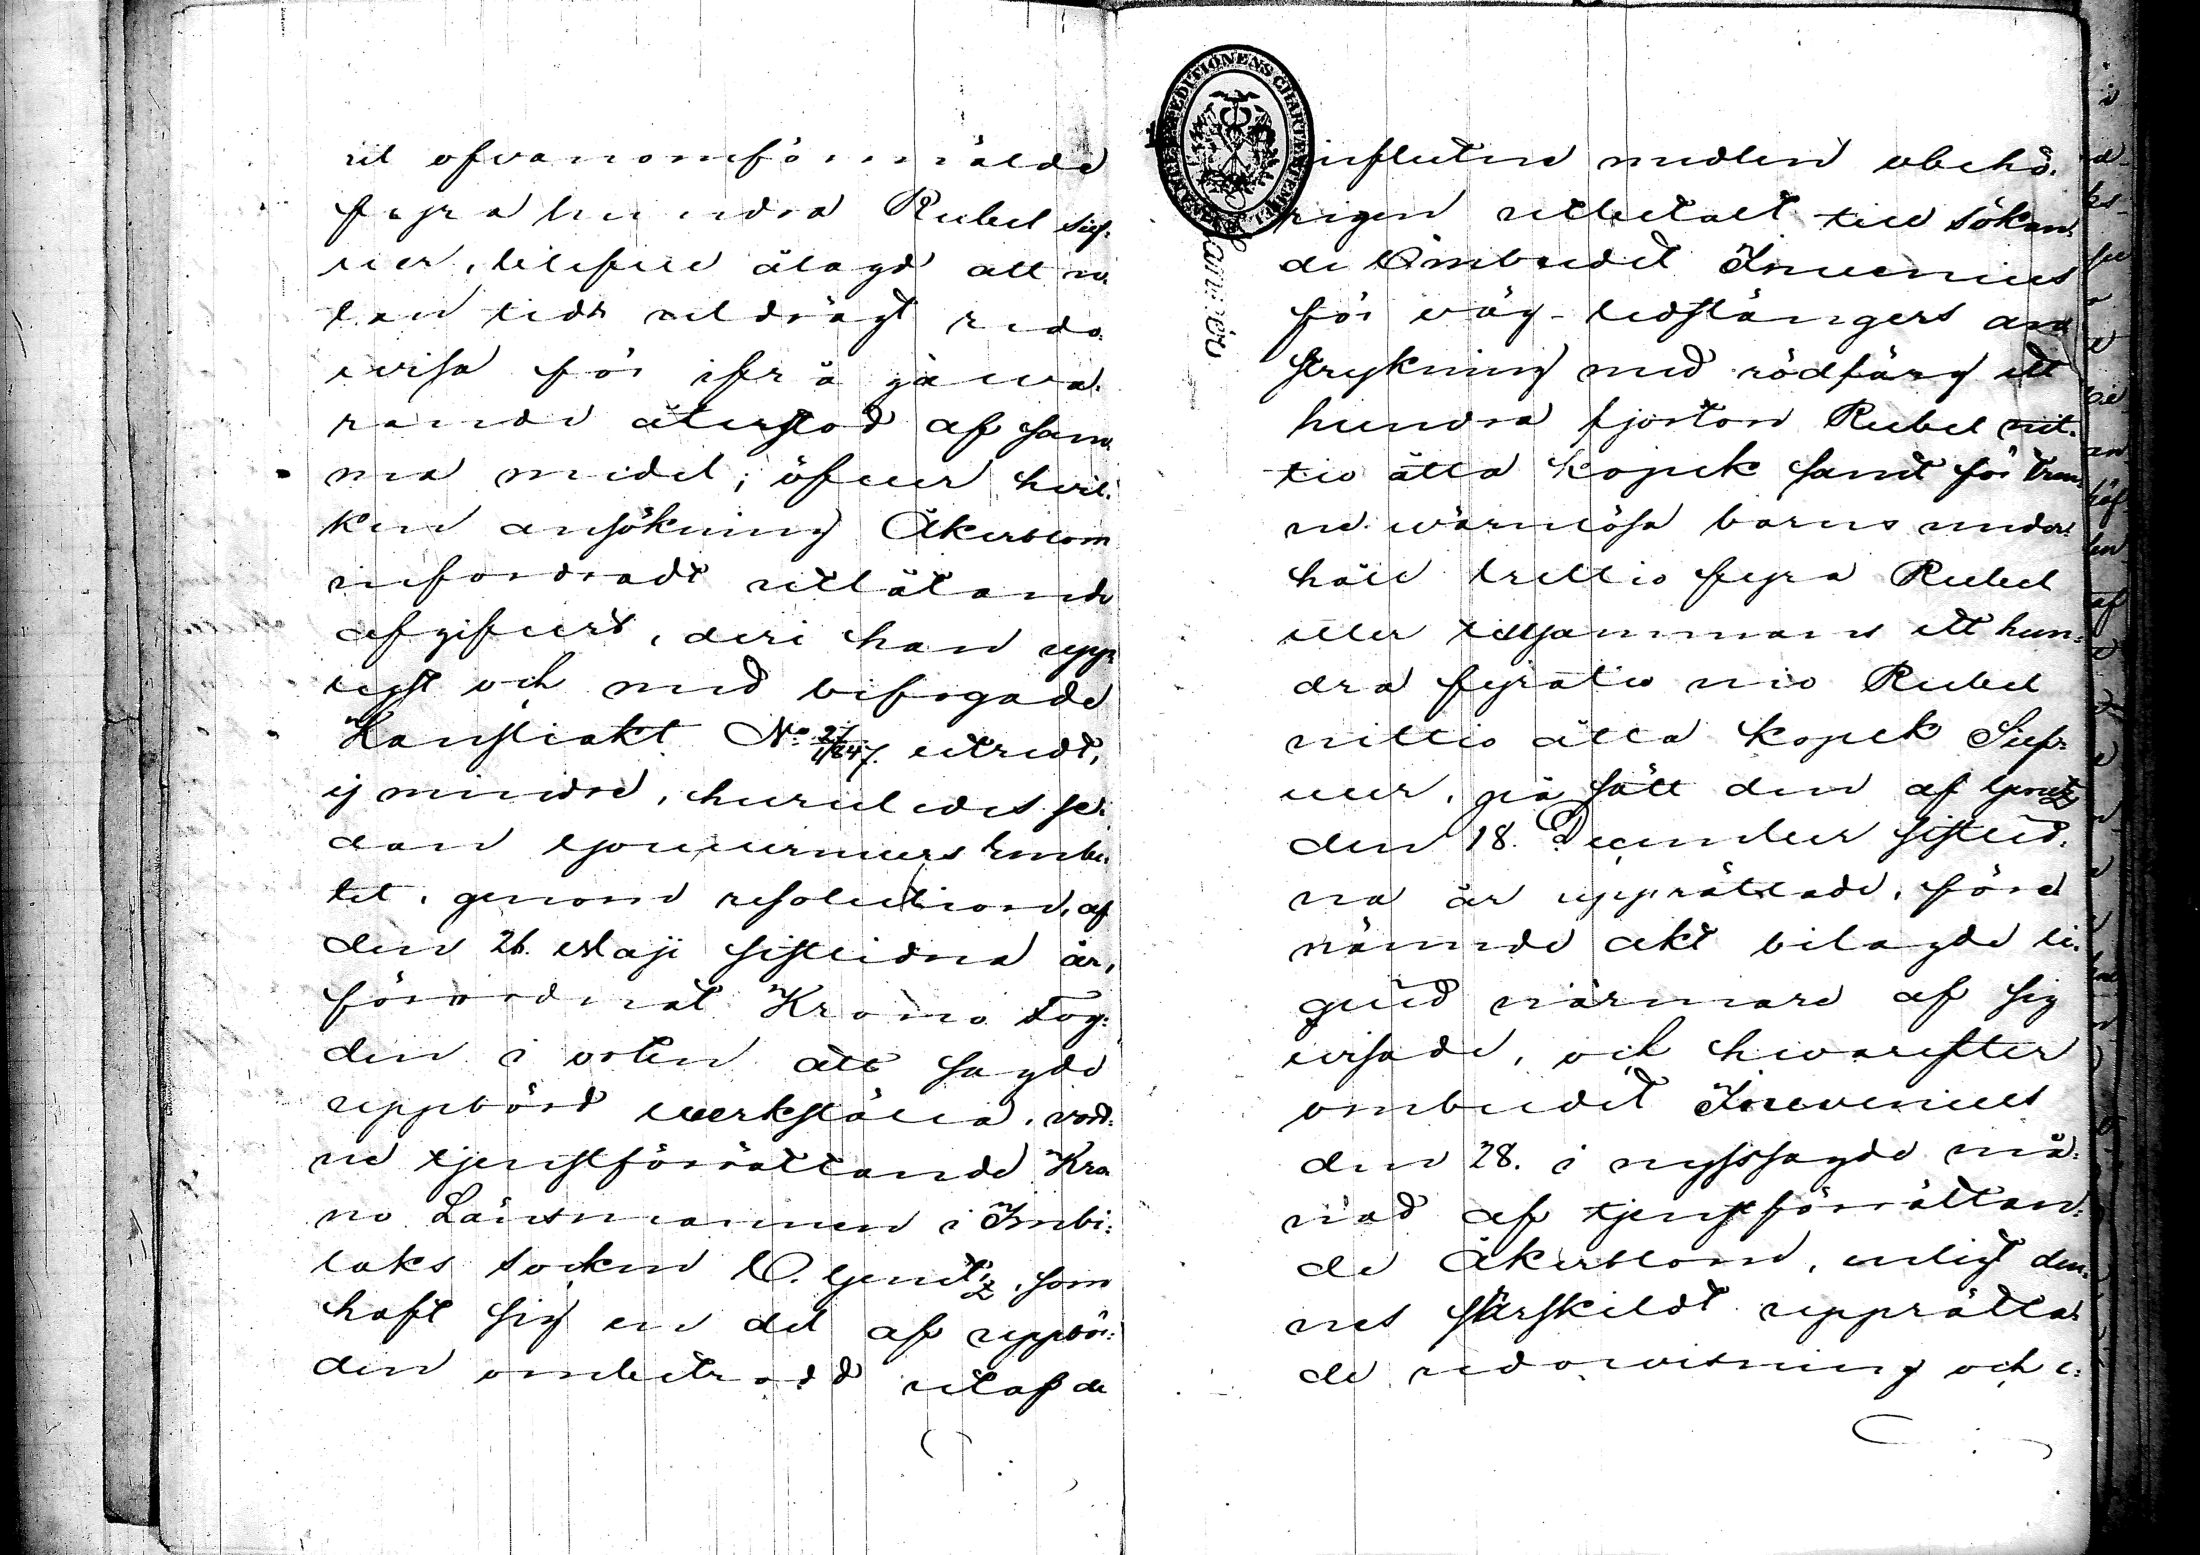 ut ofvanomförmälde
fyra hundra Rubel Silf:
ver, blifvit ålagd att u:
tan tids utdrägt redo
visa för ifrågava:
rande återstod af sam:
ma medel; öfver hvil:
ken ansökning Åkerblom
infordradt utlåtande
afgifvit, deri han upp:
lyst och med bifogade
Kansliakt No 21/1847. utredt,
ej mindre, huruledes se:
dan Gouverneurs Embe:
tet, genom resolution, af
den 26. Maji sistlidna år,
förordnat Krono Fog:
den i orten att sagde
uppbörd verkställa, vord:
ne tjenstförrättande Kro
no Länsmannen i Imbi:
laks socken O. Gentz, som
haft sig en del af uppbör:
den ombetrodd utaf de
influtne medlen obehö:
rigen utbetalt till sökan:
de Ombudet Invenius
för väg-ledstängers an
strykning med rödfärg ett
hundra fjorton Rubel nit:
tio åtta kopek samt för tven
ne värnlösa barns under:
håll trettio fyra Rubel
eller tillsammans ett hun:
dra fyratio nio Rubel
nittio åtta kopek Silf:
ver, på sätt den af Gentz
den 18. December sistlid:
na år upprättade, före
nämnde akt bilagde li:
quid närmare af sig
visade, och hvarefter
ombudet Inevenius
den 28. i nyssagde må:
nad af tjenstförrättan:
de Åkerblom, enligt den:
nes särskildt upprätta:
de redovisning och e: